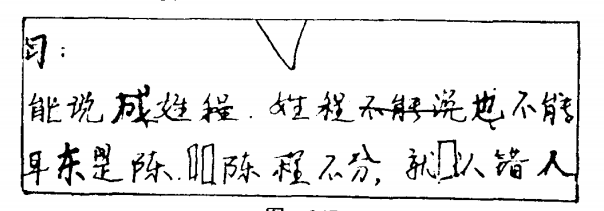 能说成姓程.姓程不能说也不能
耳东是陈.□□陈程不分,就□认错人